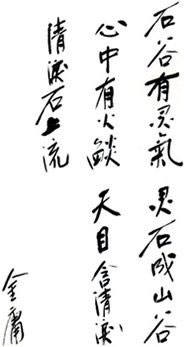 石谷有灵氣 灵石成山谷
心中有火燄 天目含清淚
清淚石上流
金庸